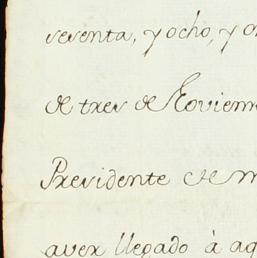 sesenta, y ocho, y
de tres de Noviem
Presidente de m
aver llegado à aq